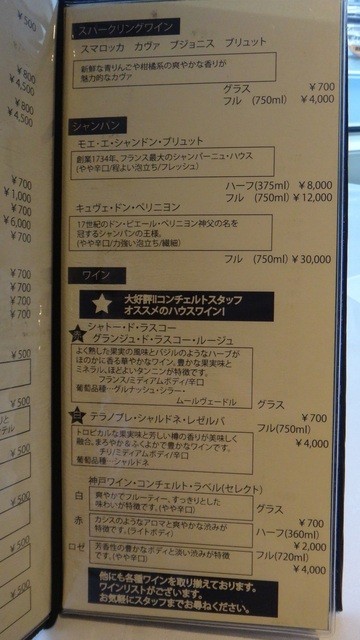 ¥500
¥800
¥4,500
¥800
¥4,500
¥700
¥1,000
¥700
¥6,000
¥700
¥700
¥700
¥700
¥700
¥500
¥500
¥500
¥500
¥500
スパークリングワイン
スマロッカ カヴァ ブジョニス ブリュット
新鮮な青りんごや柑橘系の爽やかな香りが
魅力的なカヴァ
グラス ¥700
フル (750ml) ¥4,000
シャンパン
モエ・エ・シャンドン・ブリュット
創業1734年、フランス最大のシャンパーニュ・ハウス
(やや辛口/程よい泡立ち/フレッシュ)
ハーフ(375ml) ¥8,000
フル (750ml) ¥12,000
キュヴェ・ドン・ペリニヨン
17世紀のドン・ピエール・ペリニヨン神父の名を
冠するシャンパンの王様。
(やや辛口/力強い泡立ち/繊細)
フル (750ml) ¥30,000
ワイン
大好評!!コンチェルトスタッフ
オススメのハウスワイン!
シャトー・ド・ラスコー
グランジュ・ド・ラスコー・ルージュ
よく熟した果実の風味とバジルのようなハーブが
ほのかに香る華やかなワイン。豊かな果実味と
ミネラル、ほどよいタンニンが特徴です。
フランス/ミディアムボディ/辛口
葡萄品種…グルナッシュ・シラー・
ムールヴェードル
グラス ¥700
テラノブレ・シャルドネ・レゼルバ
フル(750ml) ¥4,000
トロピカルな果実味と芳しい樽の香りが美味しく
融合。まろやか&ふくよかで豊かなワインです。
チリ/ミディアムボディ/辛口
葡萄品種…シャルドネ
神戸ワイン・コンチェルト・ラベル(セレクト)
白 爽やかでフルーティー、すっきりとした
味わいが特徴です。(やや辛口)
グラス ¥700
赤 カシスのようなアロマと爽やかな渋みが
特徴です。(ライトボディ)
ハーフ(360ml) ¥2,000
ロゼ 芳香性の豊かなボディと淡い渋みが特徴
です。(やや辛口)
フル(720ml) ¥4,000
他にも各種ワインを取り揃えております。
ワインリストがございます。
お気軽にスタッフまでお尋ねください。